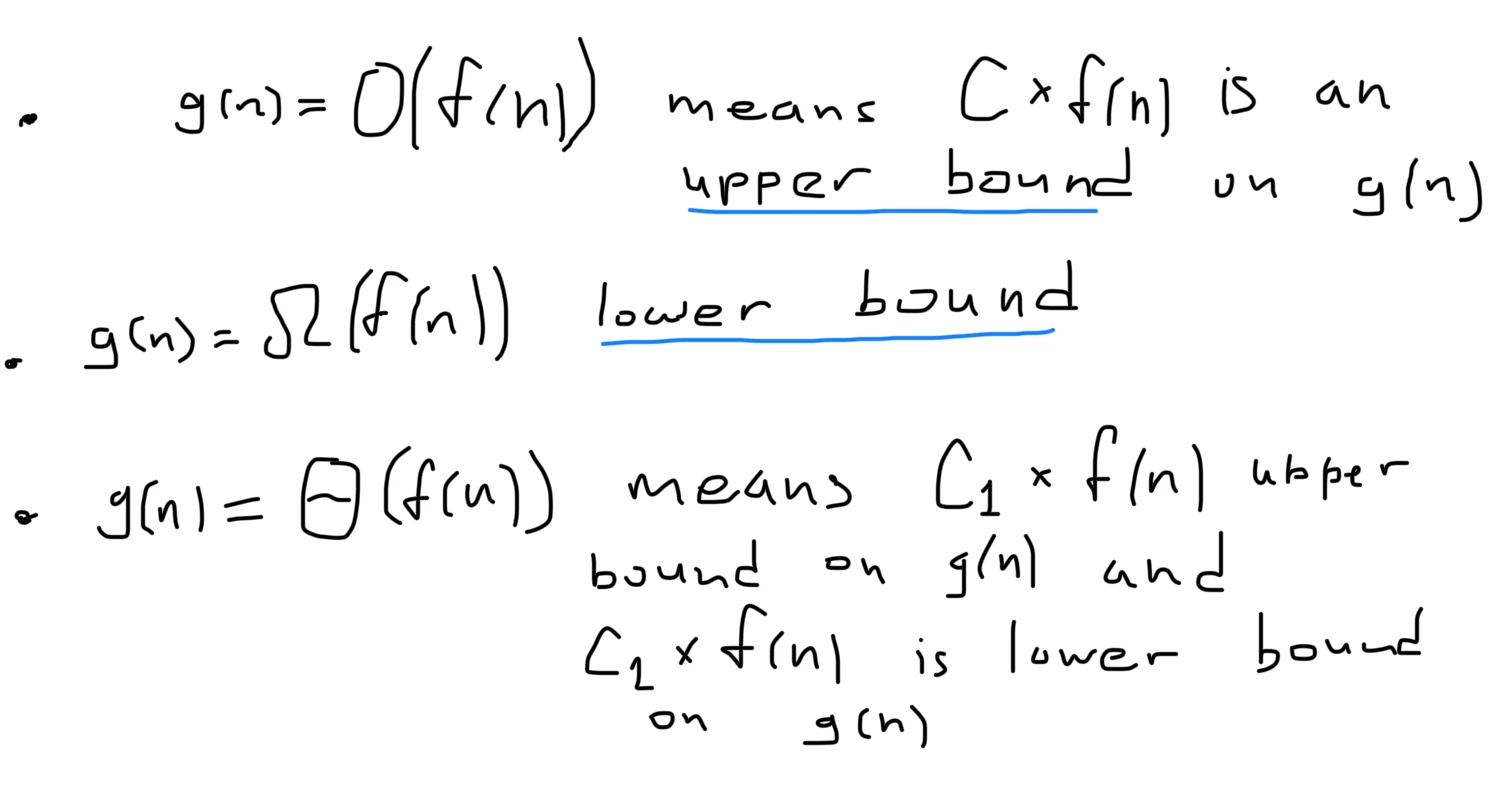 • g(n) = O(f(n)) means C × f(n) is an
upper bound on g(n)
• g(n) = Ω(f(n)) lower bound
• g(n) = Θ(f(n)) means C₁ × f(n) upper
bound on g(n) and
C₂ × f(n) is lower bound
on g(n)